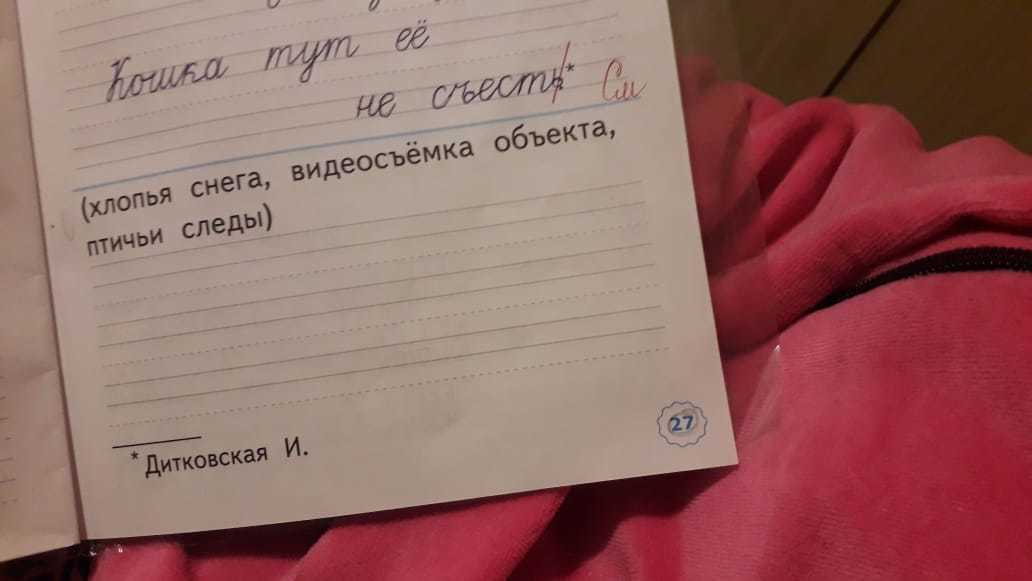 Кошка тут её
не съесть!* См
(хлопья снега, видеосъёмка объекта,
птичьи следы)
* Дитковская И.
27